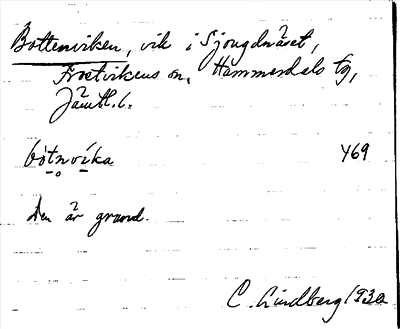 Bottenviken, vik i Sjougdnäset,
Frostvikens sn, Hammerdals tg,
Jämtl. l.
bòtnvika 469
Den är grund.
C. Lindberg 1930